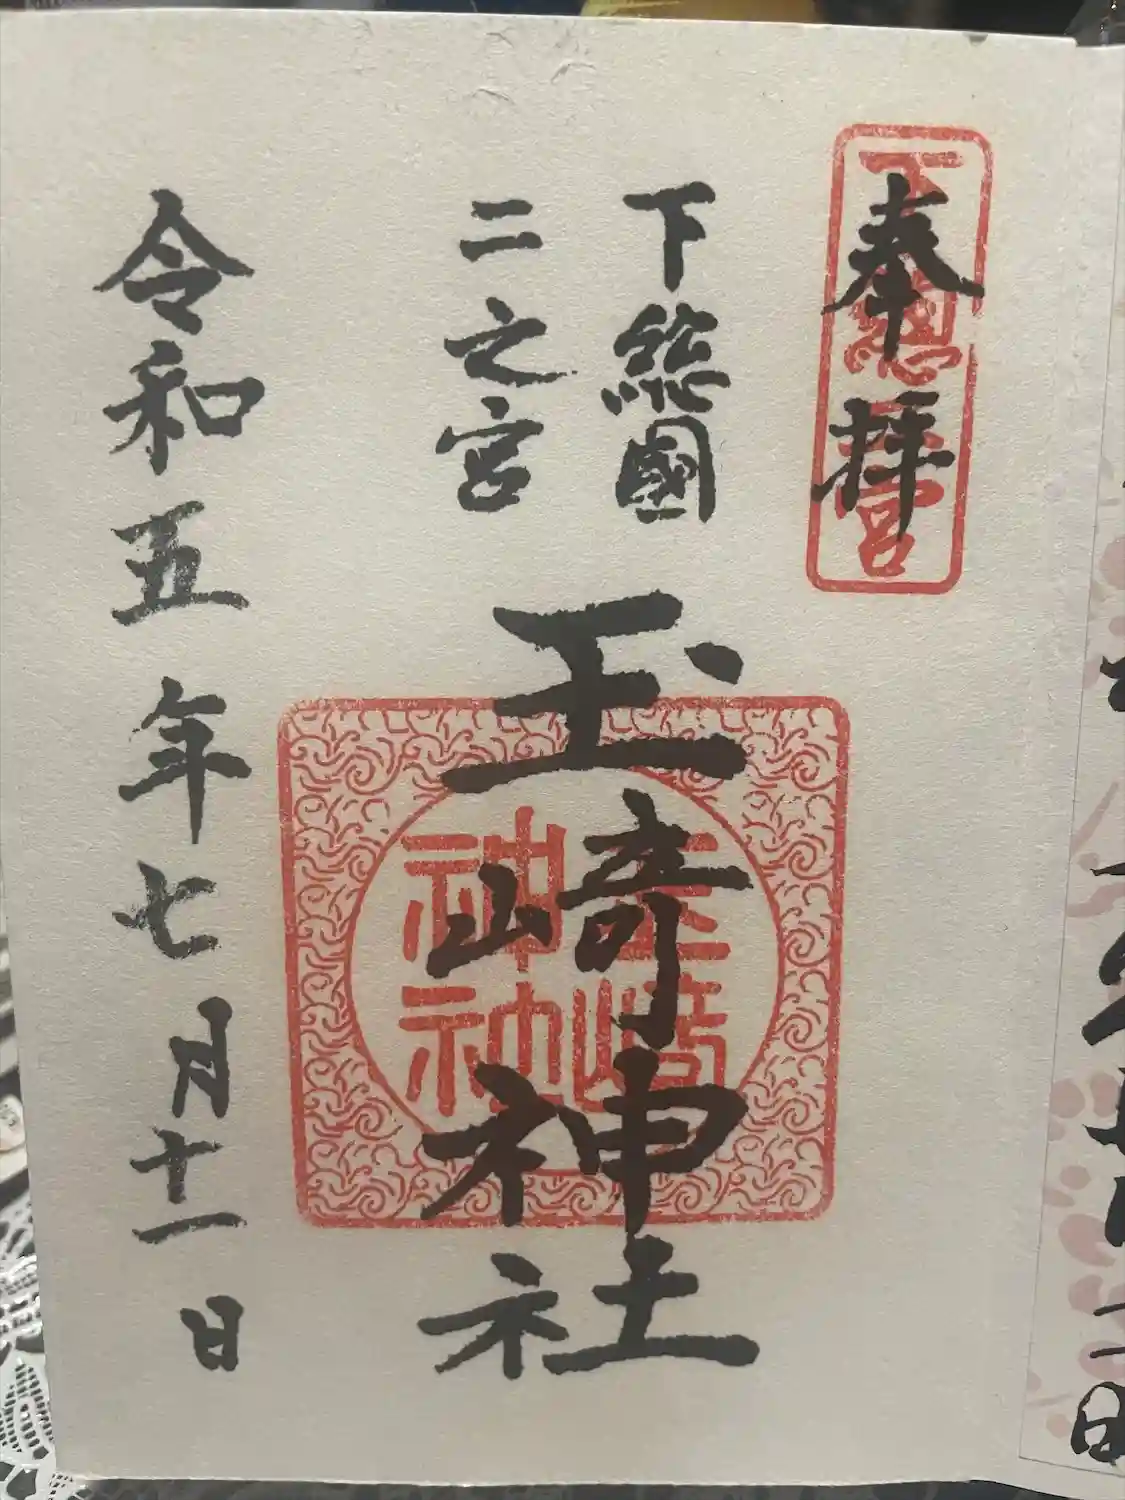 奉拝
下総二宮
下総國
二之宮
玉﨑神社
玉崎神社
令和五年七月十一日